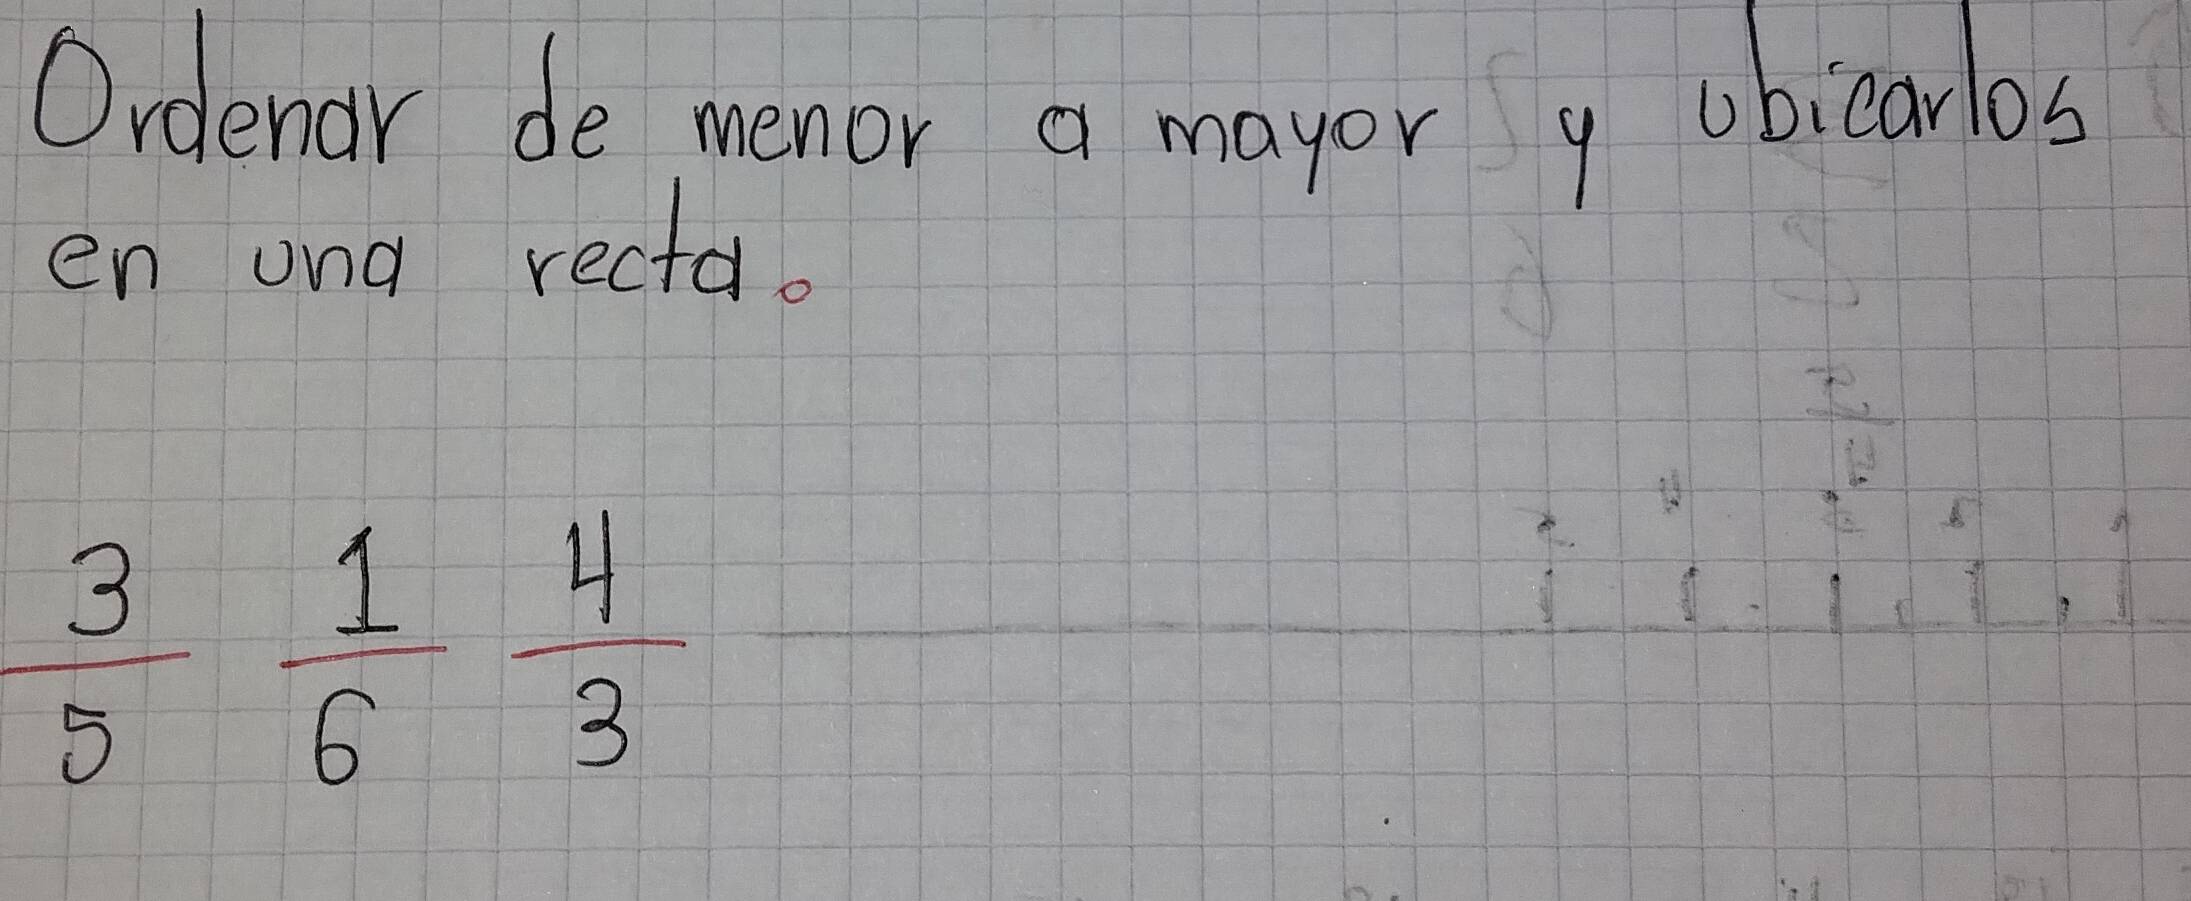 Ordenar de menor a mayor y ubicarlos
en una recta.
3 1 4
5 6 3